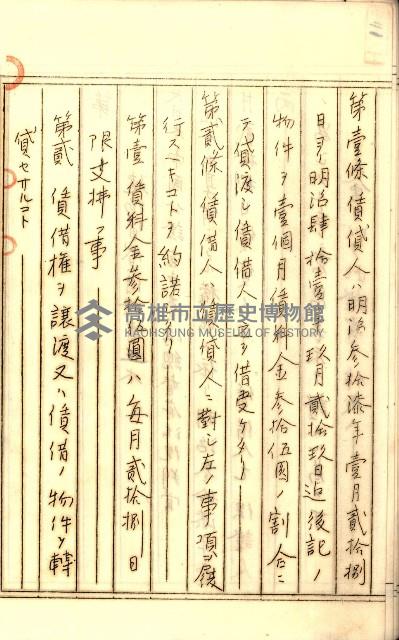 第壹條賃貸人ハ明治参拾漆年壹月貳拾捌
日ヨリ明治肆拾壹年玖月貳拾玖日迠後記ノ
物件ヲ壹個月賃料金参拾伍圓ノ割合ニ
テ貸渡シ賃借人ハ之ヲ借受ケタリ
第貳條賃借人ハ賃貸人ニ對シ左ノ事項ヲ履
行スヘキコトヲ約諾セリ
第壹 賃料金参拾伍圓ハ毎月貳拾捌日
限支拂フ事
第貳 賃借權ヲ譲渡又ハ賃借ノ物件ヲ轉
貸セサルコト
高雄市立歷史博物館
KAOHSIUNG MUSEUM OF HISTORY